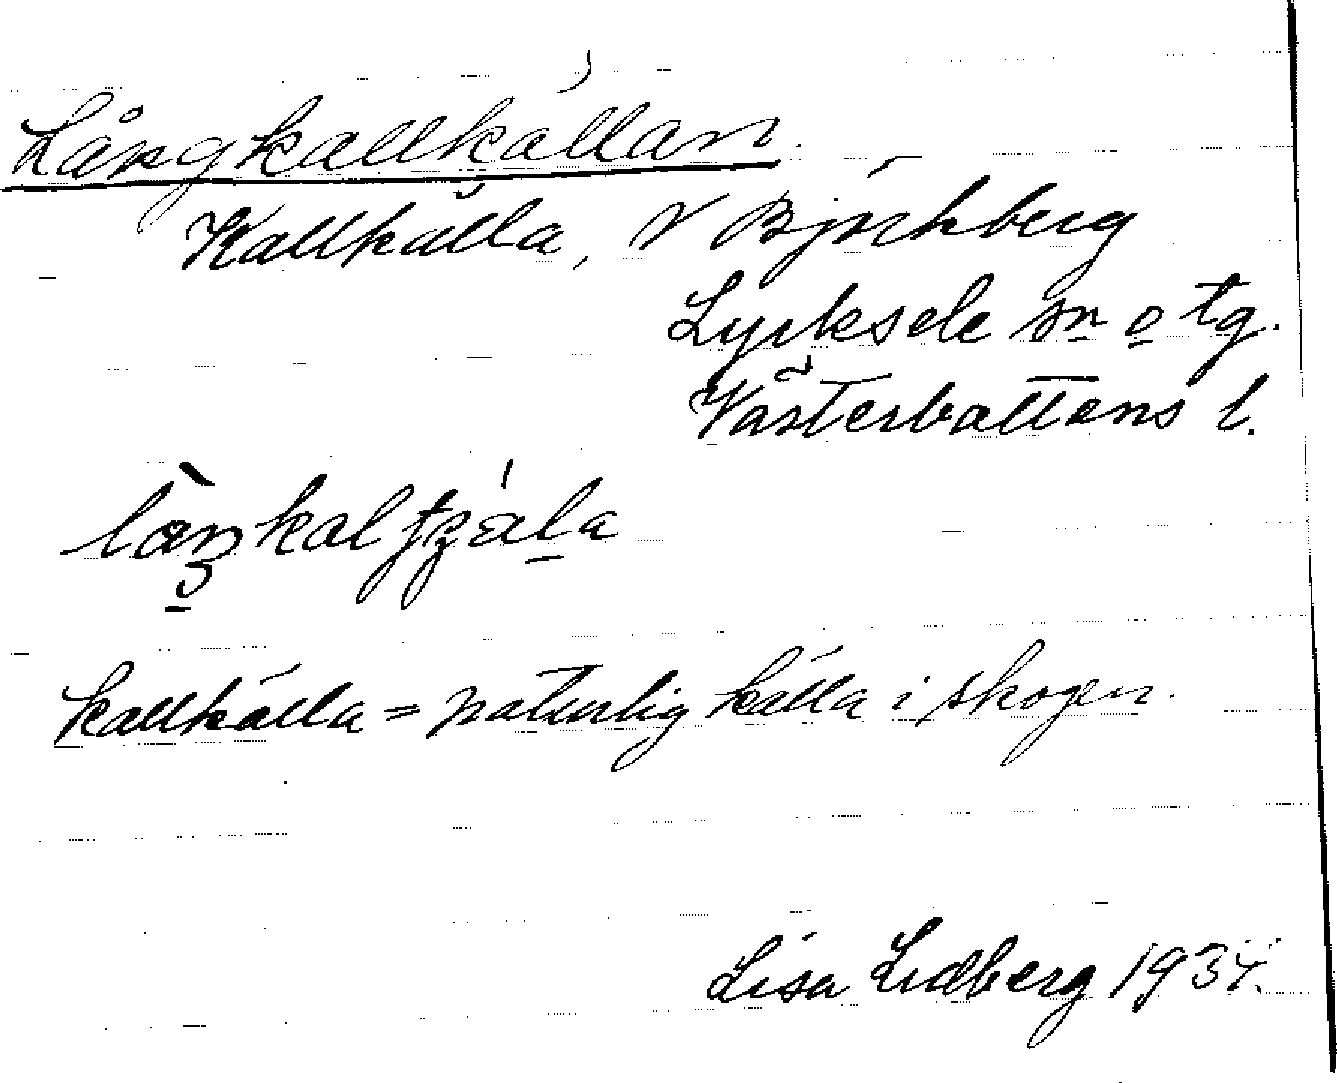 Långkallkällan.
Kallkälla, V Björkberg
Lycksele sn o tg.
Västerbottens l.
kallkälla = naturlig källa i skogen.
Lisa Lidberg 1934.